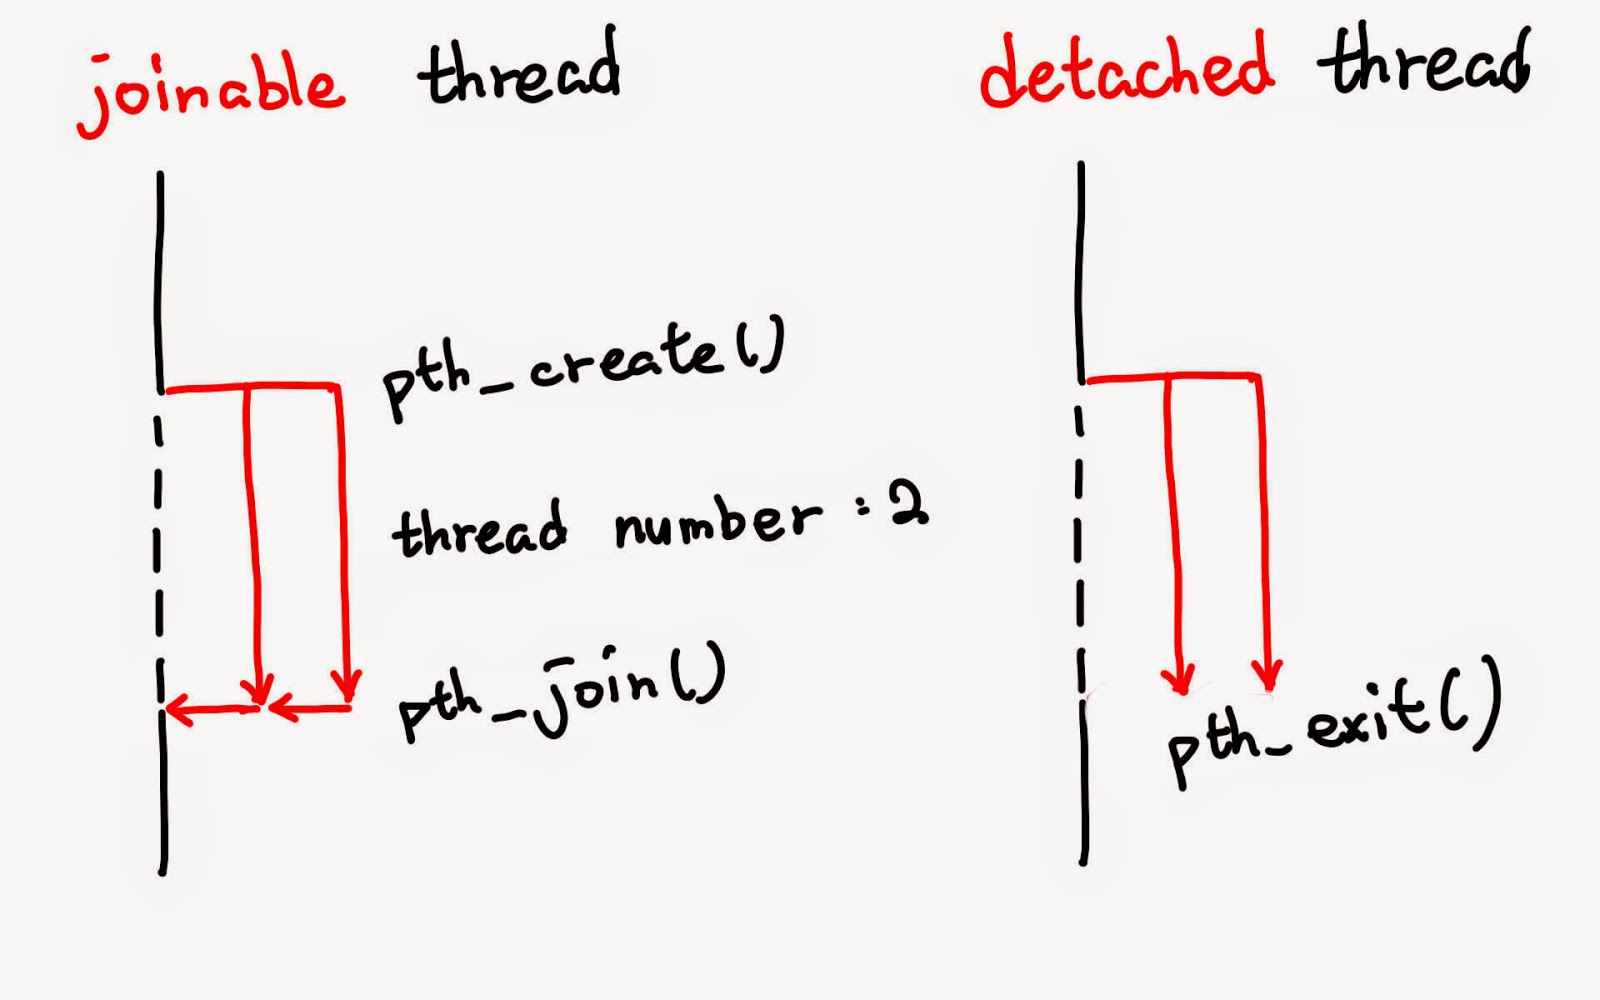 joinable thread
pth_create()
thread number : 2
pth_join()
detached thread
pth_exit()